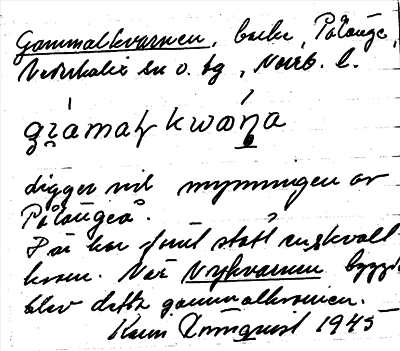 Gammalkvarnen, backe, Pålänge,
Nederkalix sn o. tg, Norrb. l.
digger vid mynningen av
Pålängeå.
Där har förut stått en skvalt
kvarn. När Nykvarnen byggd
blev detta gammalkvarnen.
1945